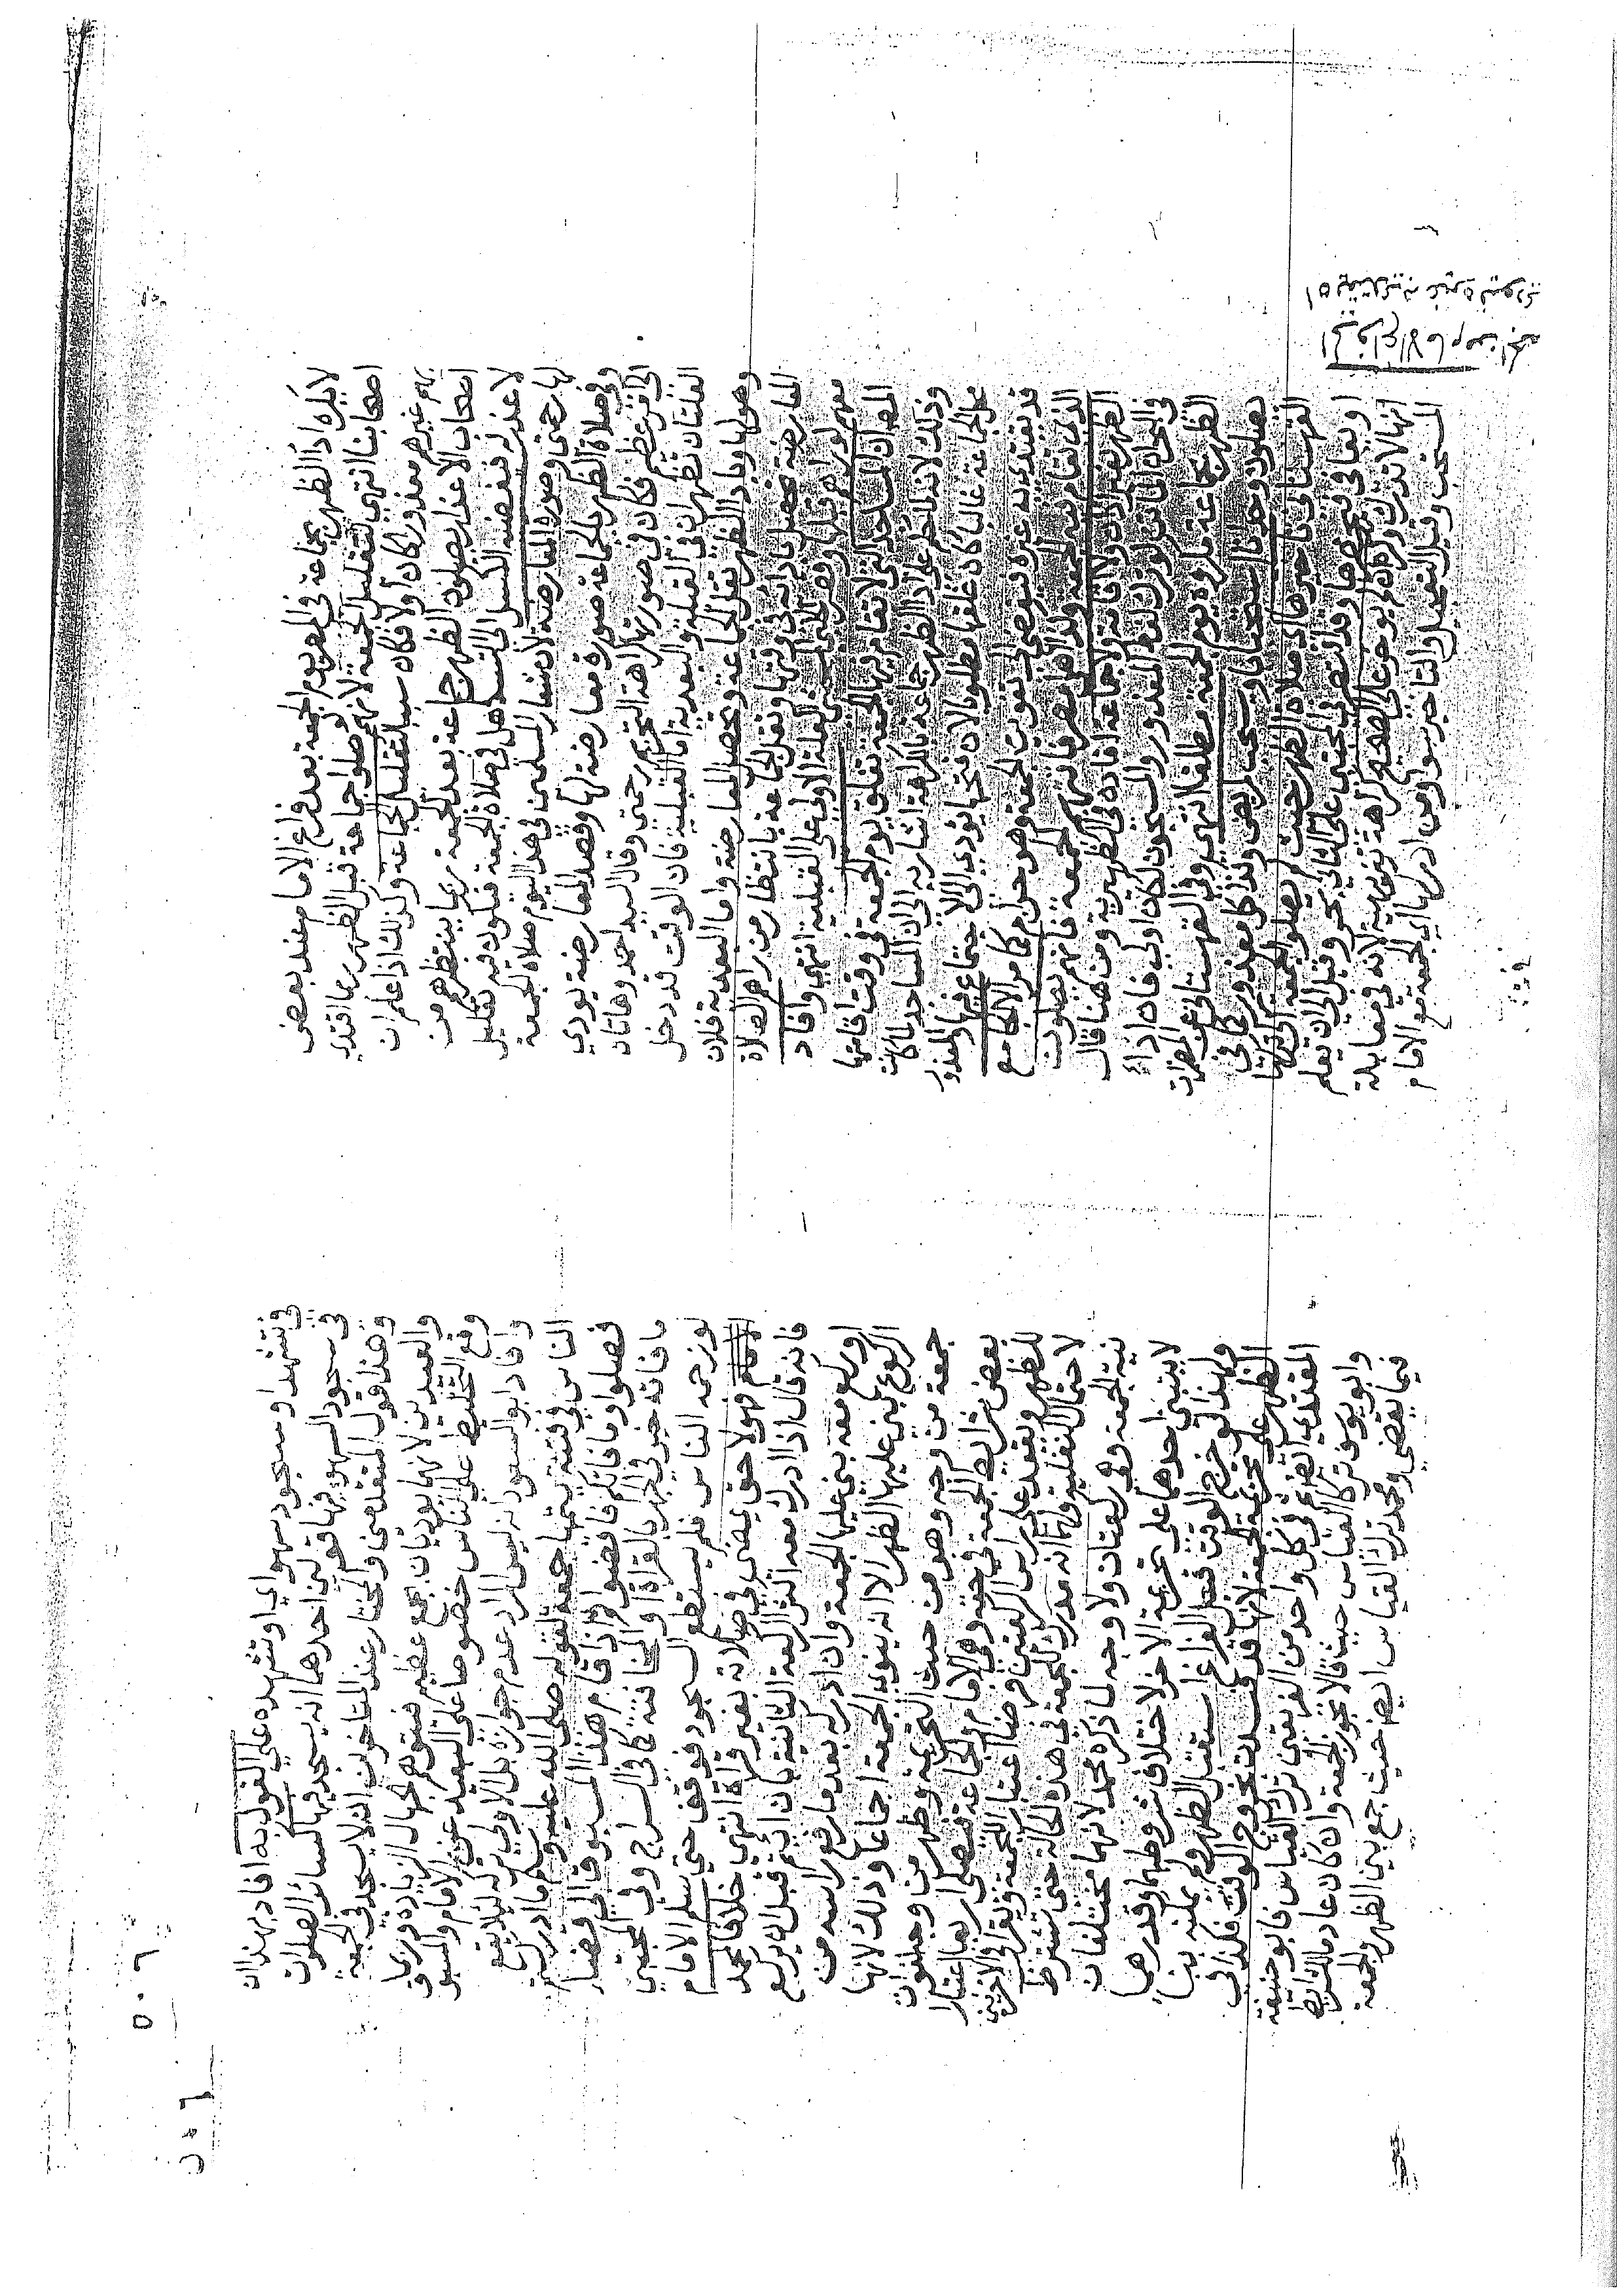 لا يكره اداء الظهر بجماعة في المصر يوم الجمعة بعد فراغ الامام عند بعض
اصحابنا انتهى لتقليل الجمعة لانهم لو صلوا جماعة قبل الظهر ربما اقتدي
بهم غيرهم معذورا كان اولا فكان سببا لتقليل الجماعة وكذلك اذا علم ان
اصحاب الاعذار يصلون الظهر جماعة بعد الجمعة ربما ينتظرهم من
لا عذر له فتفضيه الكسل الى التساهل في صلاة الجمعة فيكون فيه تقليل
لها رحمتي وصورة المعارضة لان شعار المسلمين في هذا اليوم صلاة الجمعة
وفي صلاة الظهر بالجماعة صورة معارضة لها وقصد المعارضة يودي
الى كفر عظيم فكان في صورتها كراهة التحريم رحمتي وقال السيد احمد وهاتان
العلتان تظهران في القبلية والبعدية اما القبلية فان الوقت قد دخل
الظهر تقل الجماعة وتحصل المعارضة واما البعدية فلان
المعارضة تحصل بادائه في وقتها وتقل الجماعة بانتظار من راهم الصلاة
معهم لو راهم قبلها وقصر الحلبي العلة الاولى على القبلية انتهى وافاد
المص ان المساجد التي لا تقام فيها الجمعة تغلق يوم الجمعة في وقت اقامتها
وذلك لانه لما حكم على اداء الظهر جماعة بالكراهة اشار به الى ان المساجد لما كانت
محل الجماعة غالبا كان غلقها مطلوبا لان فتحها يودي الى الاجتماع فيها والمعذور
قد يقتدي به غيره فيفضي الى تفويت الجمعة وهو حرام كما مر الا الجامع
الذي تقام فيه الجمعة وكذا اهل مصر فاتتهم الجمعة فانهم يصلون
الظهر بغير اذان ولا اقامة ولا جماعة افاده في الظهيرية ومن هنا قال
في البحر ان لو ترك لفظ المعذور والمسجون لكان اولى فان اداء
الظهر بجماعة مكروه يوم الجمعة مطلقا انتهى وفي القهستاني عن المضمرات
يصلون وحدانا استحبابا ويستحب للمريض وكذا كل معذور كما في
القهستاني تاخيرها اي صلاة الظهر حيث لم يصلوا الجمعة الى
وقد اقتصر في المجتبى على الثاني بحر وقيل الى ان يعلم
انها لا تدرك وكره ان لم يوخر على الصحيح كراهة تنزيهية لانه في مقابلة
المستحب وقيل التعجيل والتاخير سوا ومن ادركها اي الجمعة مع الامام
في تشهد او سجود سهو اي او تشهده على القول به افاد بهذا ان
في سجود السهو فيها قولين احدهما انه يسجد فيها كسائر الصلوات
وهذا قول المتقدمين والمختار عند المتاخرين ان لا يسجد في الجمعة
والعيدين لانهما يوديان بجمع عظيم فيتوهم الجهال الزيادة وربما
وقع التخليط على الناس خصوصا على البعيد عن الامام والمسبوق
وافاد ابو السعود انه ليس المراد عدم جوازه بل الاولى تركه ليلا يقع
الناس في فتنة يتمها جمعة لقوله صلى الله عليه وسلم ما ادركتم
فصلوا وما فاتكم فاقضوا واذا قام هذا المسبوق الى قضاء
ما فاته خير في الجهر بالقراة والمخافتة كما في السراج وفي المجتبى
لو زحمه الناس فلم يستطع السجود فوقف حتى سلم الامام
فهو لاحق يمضي في صلاته بغير قراة انتهى خلافا لمحمد
فانه قال اذا ادرك معه اكثر الركعة الثانية بان ائتم قبل ان يركع
او ركع معه بنى عليها الجمعة وان ادركه بعد ما رفع راسه من
الركوع بنى عليها الظهر الا انه ينوي الجمعة اجماعا وذلك لانها
جمعة من وجه وهو من حيث التحريمة وظهر من وجه لفوات
بعض شرايط الجمعة في حقه وهي الامام والجماعة فيصلي اربعا اعتبارا
للظهر ويقعد على راس الركعتين اعتبارا للجمعة ويقرا في الاخريين
لاحتمال النفلية ولهما انه مدرك للجمعة في هذه الحالة حتى تشترط
نية الجمعة وهي ركعتان ولا وجه لما ذكره محمد لانهما مختلفان
لا يبتنى احدهما على تحريمة الاخر لاختلاف شروطهما وقدرهما
ولهذا لو خرج الوقت قبل الفراغ استقبل الظهر ولم يمكنه بنا
الظهر على تحريمة الجمعة لانها قد فسدت بخروج الوقت فكذا في
المقتدي انتصر في كل واحد من الفريقين ترك القياس فابو حنيفة
وابو يوسف تركا القياس حيث قالا بجواز الجمعة وان كان عادما للشرايط
فيما يقضي ومحمد ترك القياس ايضا حيث جمع بين الظهر والجمعة